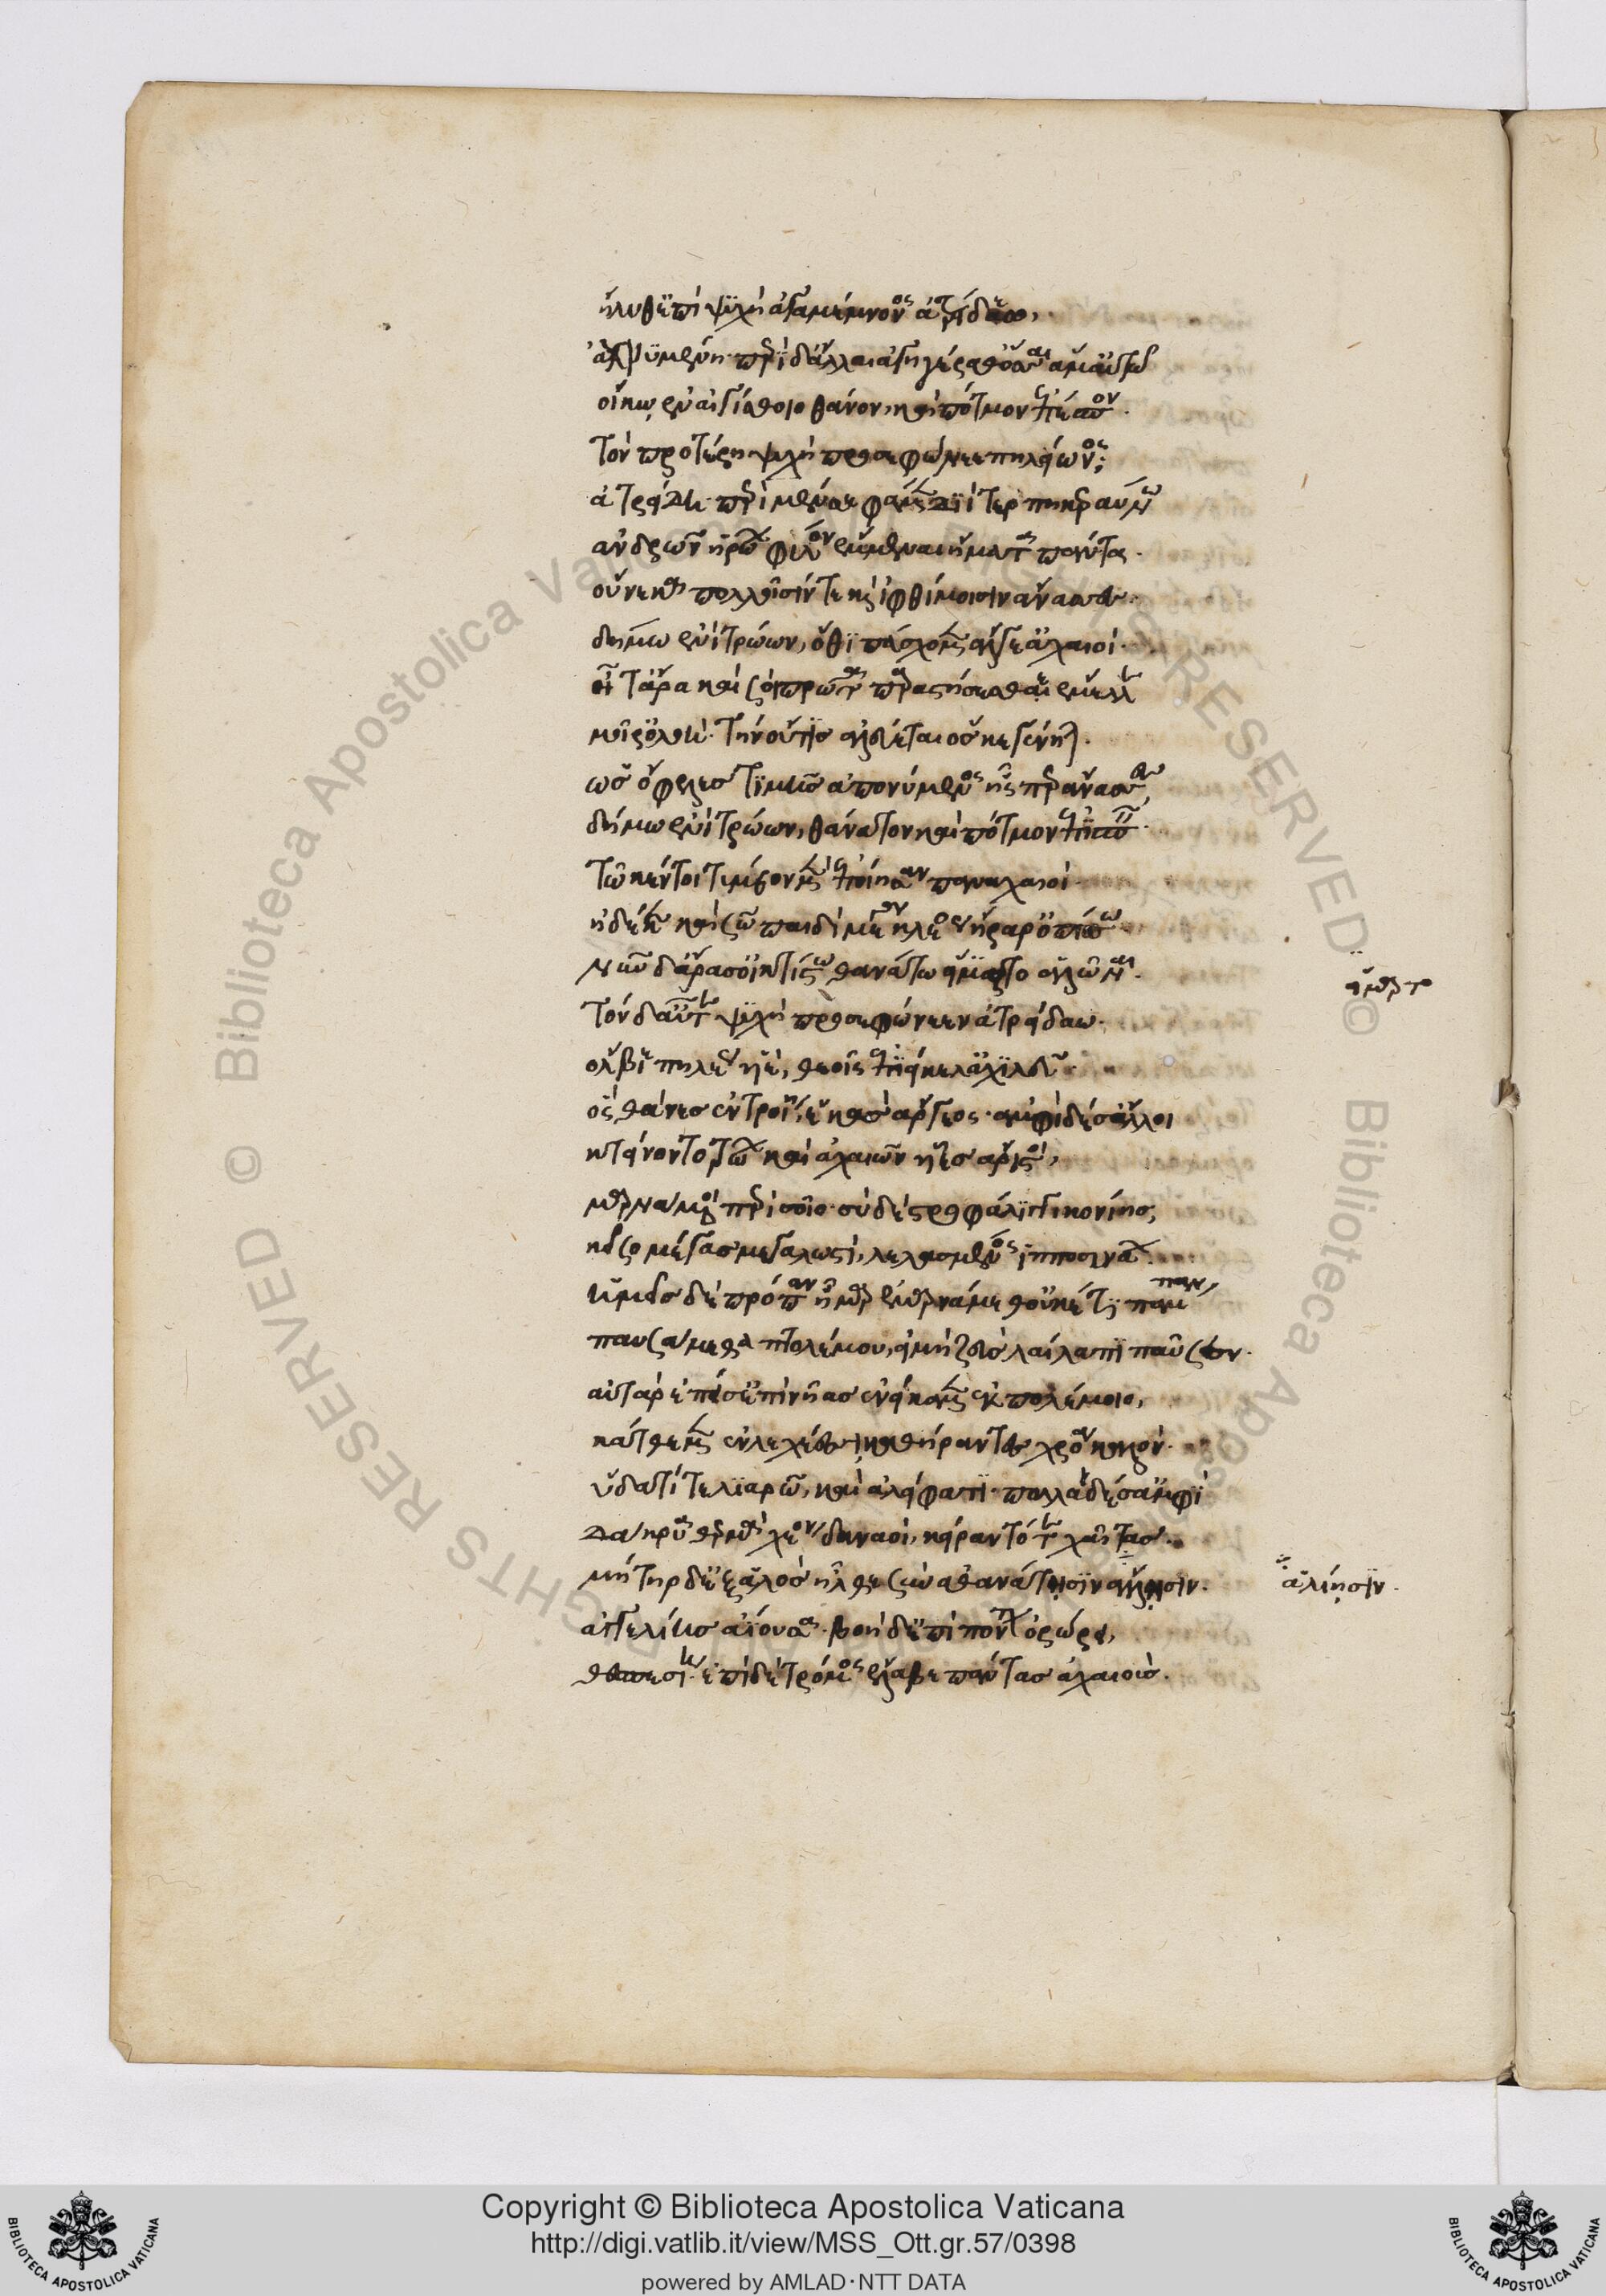 ἤλυθ' ἐπὶ ψυχὴ ἀγαμέμνονος ἀτρείδαο,
ἀχνυμένη· περὶ δ' ἄλλαι ἀγηγέραθ' ὅσσαι ἅμ' αὐτῶ
οἴκω ἐν αἰγίσθοιο θάνον, καὶ πότμον ἐπέσπον.
τὸν προτέρη ψυχὴ προσεφώνεε πηλείωνος;
ἀτρείδη· περὶ μέν σε φαμὲν διὶ τερπικεραύνω
ἀνδρῶν ἡρώων φίλον ἔμμεναι ἤματα πάντα.
οὕνεκα πολλοῖσίν τε καὶ ἰφθίμοισιν ἄνασσες.
δήμω ἐνὶ τρώων, ὅθι πάσχομεν ἄλγε' ἀχαιοί.
ἦ τ' ἄρα καὶ σοὶ πρῶτα παραστήσεσθαι ἔμελλε
μοῖρ' ὀλοὴ· τὴν οὔτις ἀλεύεται ὅς κε γένηται.
ὡς ὄφελες τιμῆς ἀπονήμενος ἧς περ ἄνασσες,
δήμω ἐνὶ τρώων, θάνατον καὶ πότμον ἐπισπεῖν.
τῶ κέν τοι τύμβον μὲν ἐποίησαν παναχαιοί.
ἠδέ κε καὶ σῶ παιδὶ μέγα κλέος ἤρα' ὀπίσσω.
νῦν δ' ἄρα σ' οἰκτίστω θανάτω εἵμαρτο ἁλῶναι.
εἵμαρτο
τὸν δ' αὖτε ψυχὴ προσεφώνεεν ἀτρείδαο.
ὄλβιε πηλέος υἱὲ, θεοῖς ἐπιείκελ' ἀχιλλεῦ.
ὃς θάνες ἐν τροίη, ἑκὰς ἄργεος· ἀμφὶ δέ σ' ἄλλοι
κτείνοντο τρώων καὶ ἀχαιῶν υἷες ἄριστοι,
μαρνάμενοι περὶ σοῖο· σὺ δὲ στροφάλιγγι κονίης,
κεῖσο μέγας μεγαλωστὶ, λελασμένος ἱπποσυνάων.
ἡμεῖς δὲ πρόπαν ἦμαρ ἐμαρνάμεθ' οὐκέτι πάμπαν
παυσάμεθα πτολέμου, εἰ μὴ ζεὺς λαίλαπι παῦσεν.
αὐτὰρ ἐπεί σ' ἐπὶ νῆας ἐνείκαμεν ἐκ πολέμοιο,
κάτθεμεν ἐν λεχέεσσι, καθήραντες χρόα καλὸν.
ὕδατί τε λιαρῶ, καὶ ἀλείφατι· πολλὰ δέ σ' ἀμφὶ
δάκρυα θερμὰ χέον δαναοὶ, κείραντό τε χαίτας.
μήτηρ δ' ἐξ ἁλὸς ἦλθε σὺν ἀθανάτησιν ἁλίησιν.
ἁλίησιν.
ἀγγελίης ἀΐουσα· βοὴ δ' ἐπὶ πόντον ὀρώρει,
θεσπεσίη· ἐπὶ δὲ τρόμος ἔλλαβε πάντας ἀχαιούς.
Copyright © Biblioteca Apostolica Vaticana
http://digi.vatlib.it/view/MSS_Ott.gr.57/0398
powered by AMLAD·NTT DATA